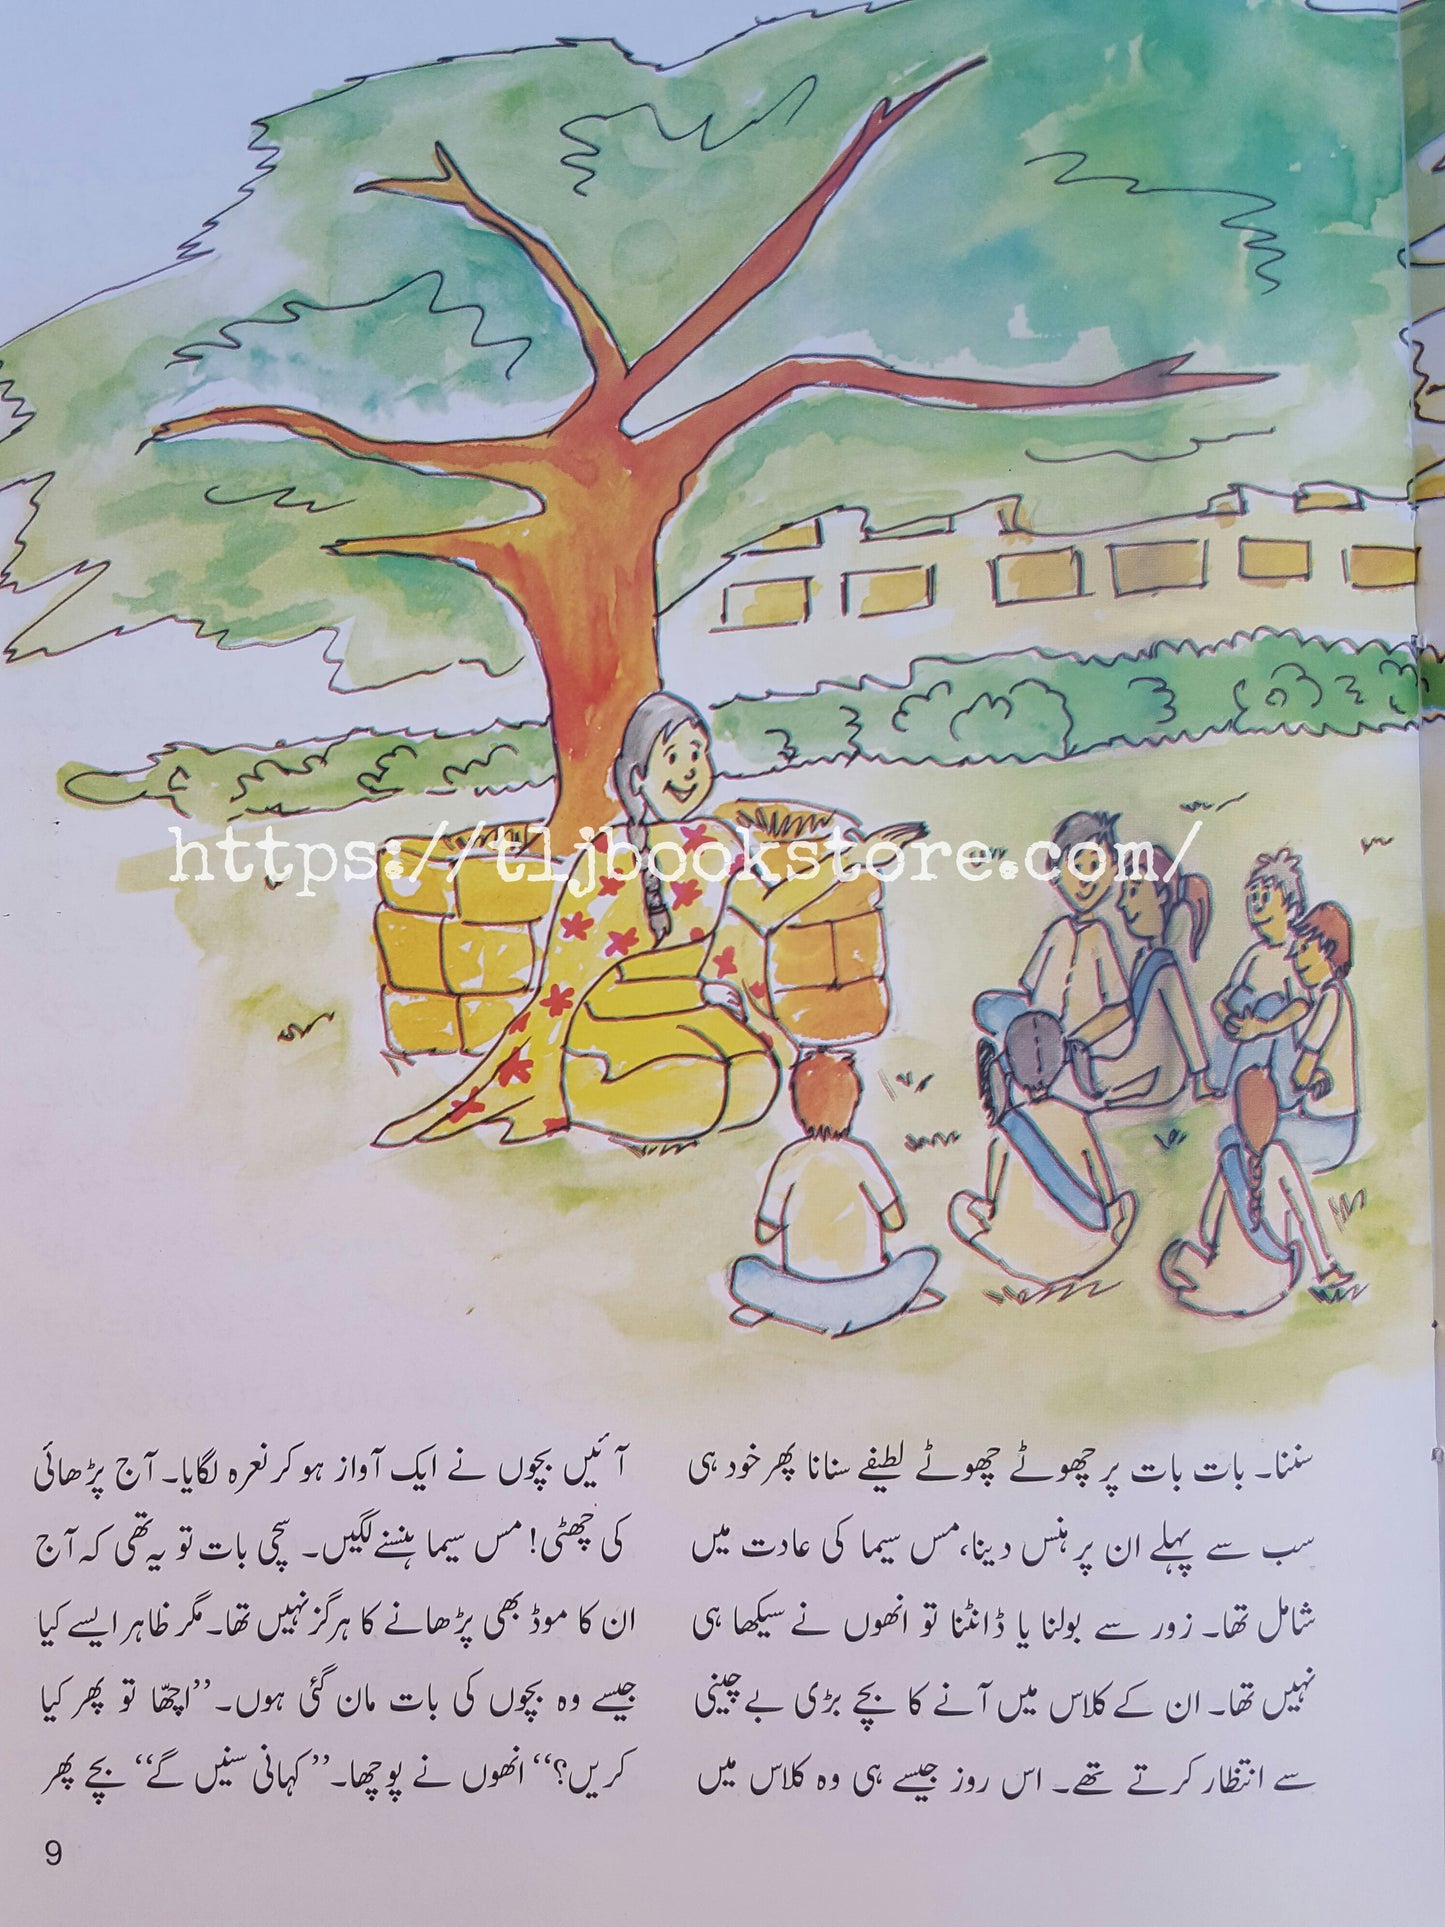 https://tljbookstore.com/
سننا۔ بات بات پر چھوٹے چھوٹے لطیفے سنانا پھر خود ہی
سب سے پہلے ان پر ہنس دینا، مس سیما کی عادت میں
شامل تھا۔ زور سے بولنا یا ڈانٹنا تو انھوں نے سیکھا ہی
نہیں تھا۔ ان کے کلاس میں آنے کا بچے بڑی بے چینی
سے انتظار کرتے تھے۔ اس روز جیسے ہی وہ کلاس میں
آئیں بچوں نے ایک آواز ہو کر نعرہ لگایا۔ آج پڑھائی
کی چھٹی! مس سیما ہنسنے لگیں۔ سچی بات تو یہ تھی کہ آج
ان کا موڈ بھی پڑھانے کا ہرگز نہیں تھا۔ مگر ظاہر ایسے کیا
جیسے وہ بچوں کی بات مان گئی ہوں۔ ”اچھّا تو پھر کیا
کریں؟“ انھوں نے پوچھا۔ ”کہانی سنیں گے“ بچے پھر
9